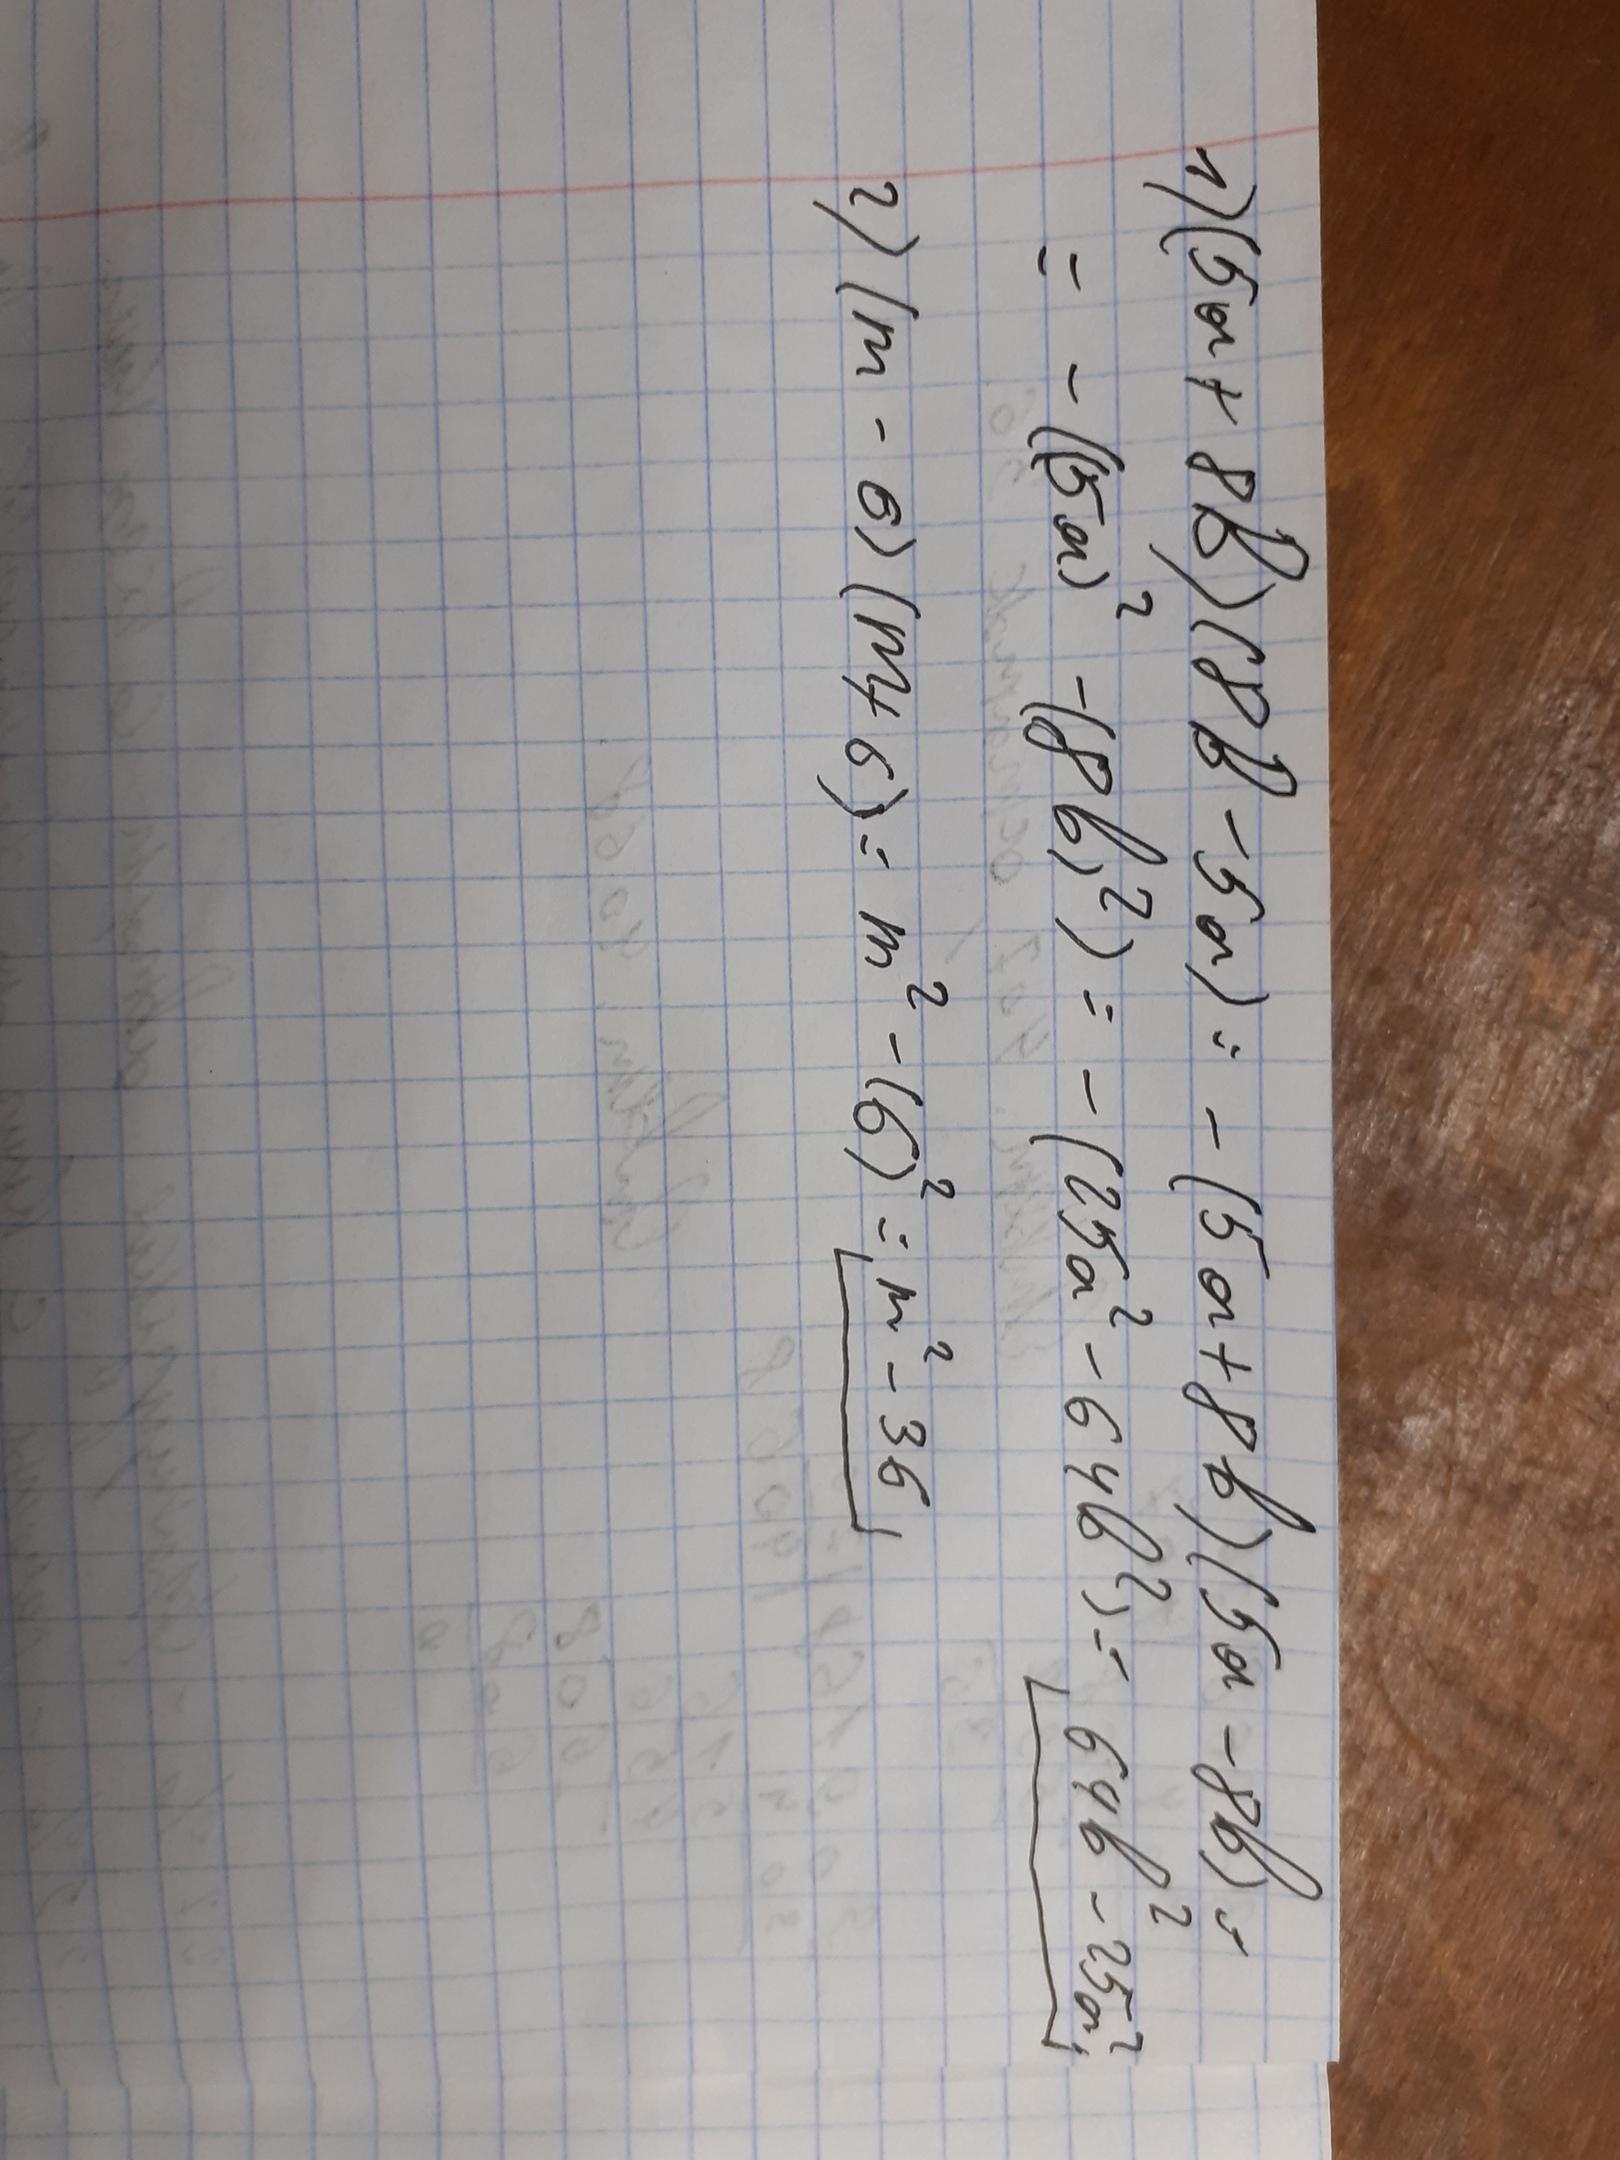 1) (5a + 8b)(8b - 5a) = - (5a + 8b)(5a - 8b) =
= - ((5a)² - (8b)²) = - (25a² - 64b²) = 64b² - 25a²
2) (m - 6)(m + 6) = m² - (6)² = m² - 36